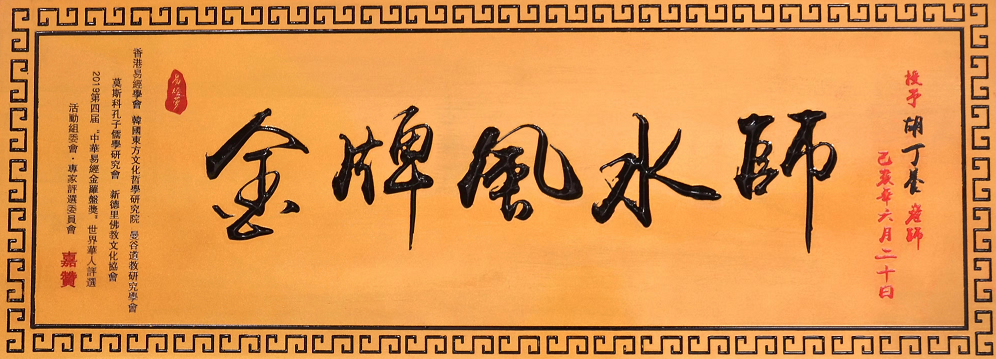 授予 胡丁 師
己亥年六月二十日
金牌風水師
香港易經學會 韓國東方文化哲學研究院 曼谷道教研究學會
莫斯科孔子儒學研究會 新德里佛教文化協會
2019第四屆“中華易經金羅盤獎”世界華人評選
活動組委會・專家評選委員會 嘉贊